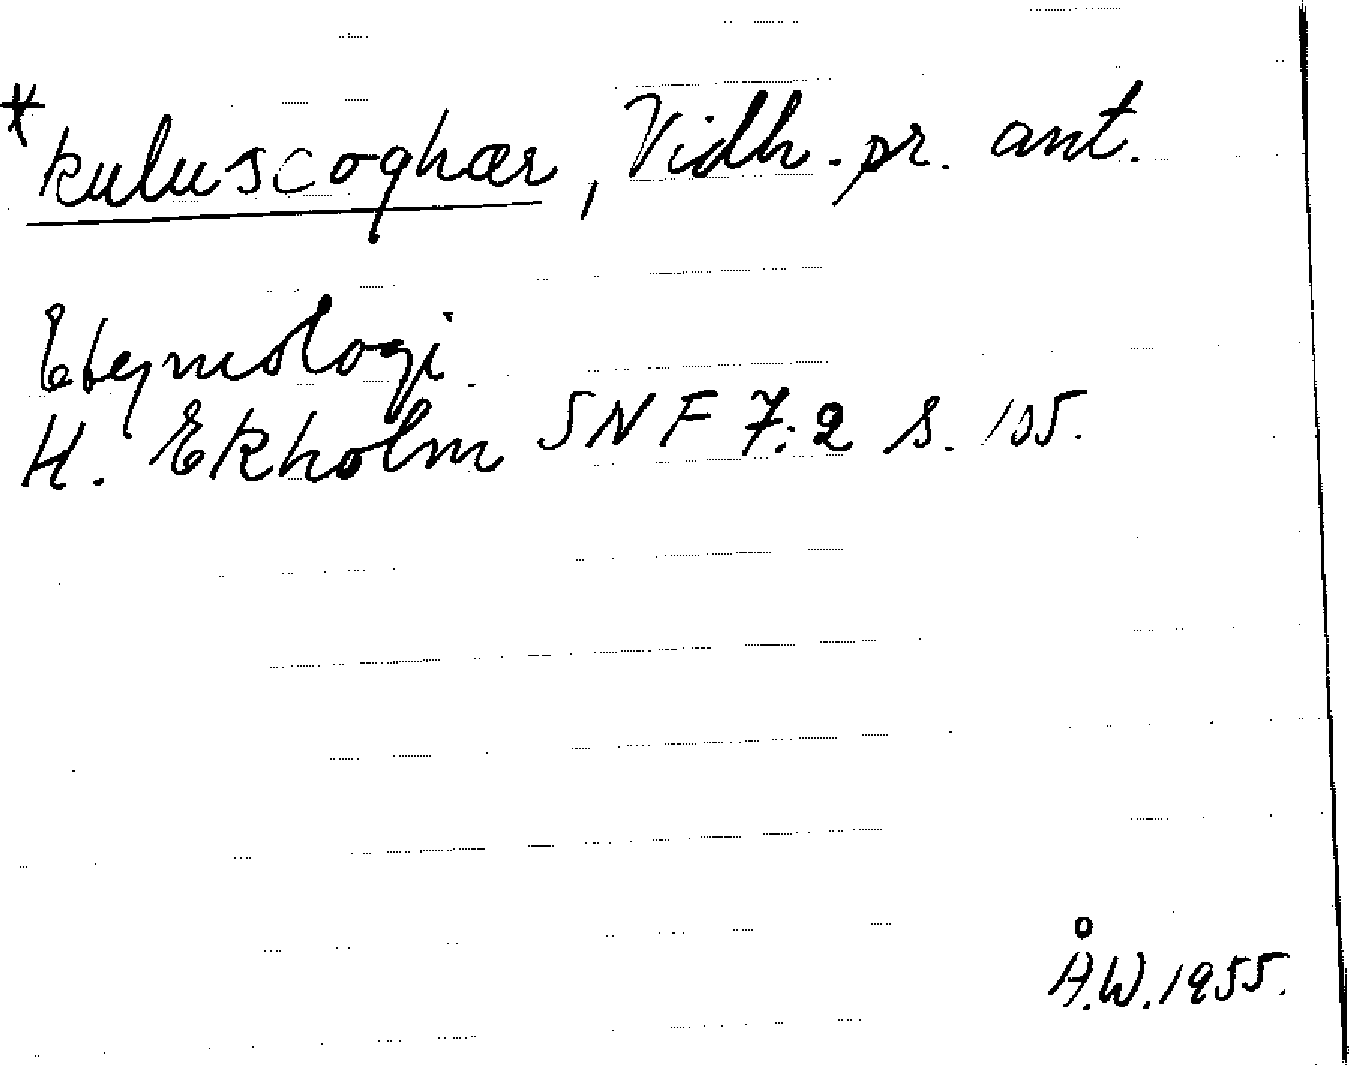 * kuluscoghær, Vidh. pr. ant.
Etymologi
H. Ekholm SNF 7:2 s. 105.
Å.W. 1955.